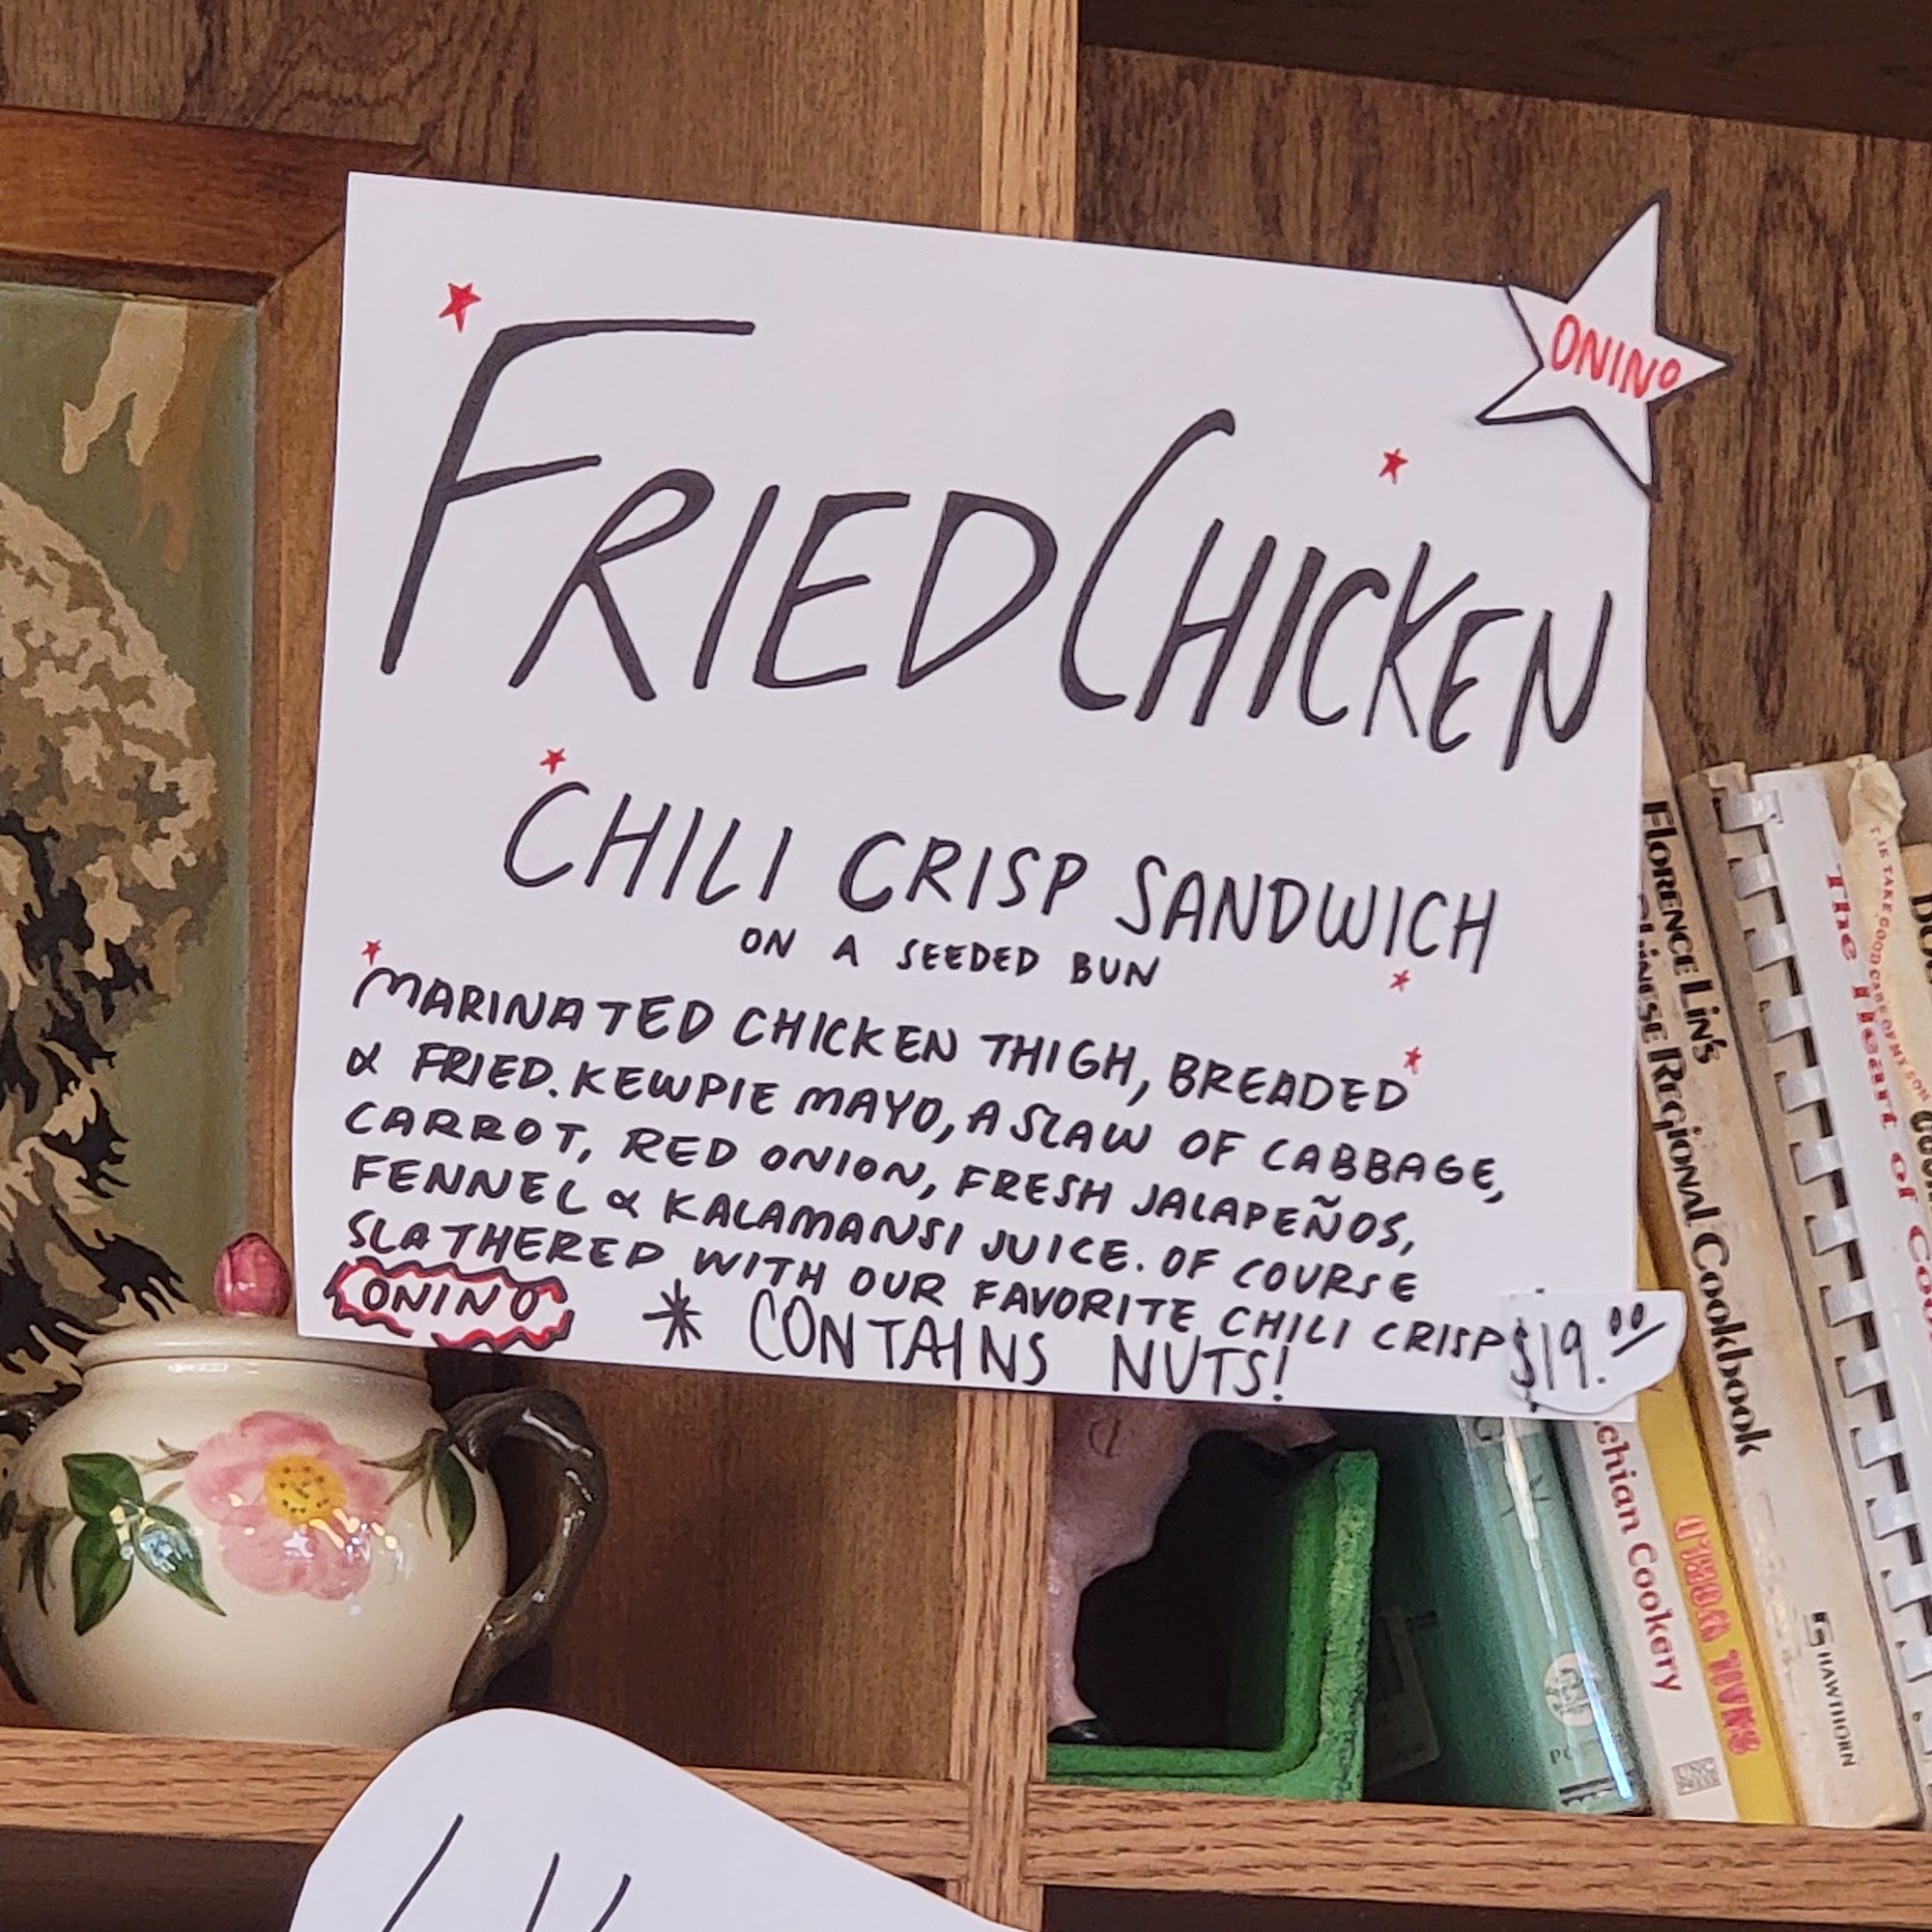 ONINO
FRIED CHICKEN
CHILI CRISP SANDWICH
ON A SEEDED BUN
MARINATED CHICKEN THIGH, BREADED
& FRIED. KEWPIE MAYO, A SLAW OF CABBAGE,
CARROT, RED ONION, FRESH JALAPEÑOS,
FENNEL & KALAMANSI JUICE. OF COURSE
SLATHERED WITH OUR FAVORITE CHILI CRISP
ONINO
* CONTAINS NUTS!
$19.00
chian Cookery
FLORENCE LIN'S
CHINESE REGIONAL COOKBOOK
HAWTHORN
The Heart of